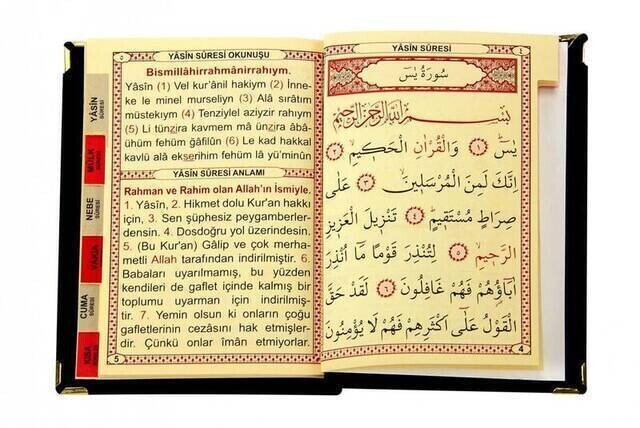 YÂSÎN SÛRESİ OKUNUŞU
Bismillâhirrahmânirrahıym.
Yâsîn (1) Vel kur'ânil hakiym (2) İnne-
ke le minel murseliyn (3) Alâ sırâtım
müstekıym (4) Tenziylel aziyzir rahıym
(5) Li tünzira kavmem mâ ünzira âbâ-
ühüm fehüm gâfilûn (6) Le kad hakkal
kavlü alâ ekserihim fehüm lâ yü'minûn
YÂSÎN SÛRESİ ANLAMI
Rahman ve Rahim olan Allah'ın İsmiyle.
1. Yâsîn, 2. Hikmet dolu Kur'an hakkı
için, 3. Sen şüphesiz peygamberler-
densin. 4. Dosdoğru yol üzerindesin.
5. (Bu Kur'an) Gâlip ve çok merha-
metli Allah tarafından indirilmiştir. 6.
Babaları uyarılmamış, bu yüzden
kendileri de gaflet içinde kalmış bir
toplumu uyarman için indirilmiş-
tir. 7. Yemin olsun ki onların çoğu
gafletlerinin cezâsını hak etmişler-
dir. Çünkü onlar îmân etmiyorlar.
5
YÂSİN
SÛRESİ
MÜLK
NEBE
SÛRESİ
VAKIA
CUMA
SÛRESİ
KISA
YÂSÎN SÛRESİ
٤
سُورَةُ يٰسٓ
بِسْمِ اللّٰهِ الرَّحْمٰنِ الرَّحِيمِ
يٰسٓ ﴿١﴾ وَالْقُرْاٰنِ الْحَكِيمِ ﴿٢﴾
اِنَّكَ لَمِنَ الْمُرْسَلِينَ ﴿٣﴾ عَلٰى
صِرَاطٍ مُسْتَقِيمٍ ﴿٤﴾ تَنْزِيلَ الْعَزِيزِ
الرَّحِيمِ ﴿٥﴾ لِتُنْذِرَ قَوْمًا مَٓا اُنْذِرَ
اٰبَٓاؤُهُمْ فَهُمْ غَافِلُونَ ﴿٦﴾ لَقَدْ حَقَّ
الْقَوْلُ عَلٰٓى اَكْثَرِهِمْ فَهُمْ لَا يُؤْمِنُونَ
4